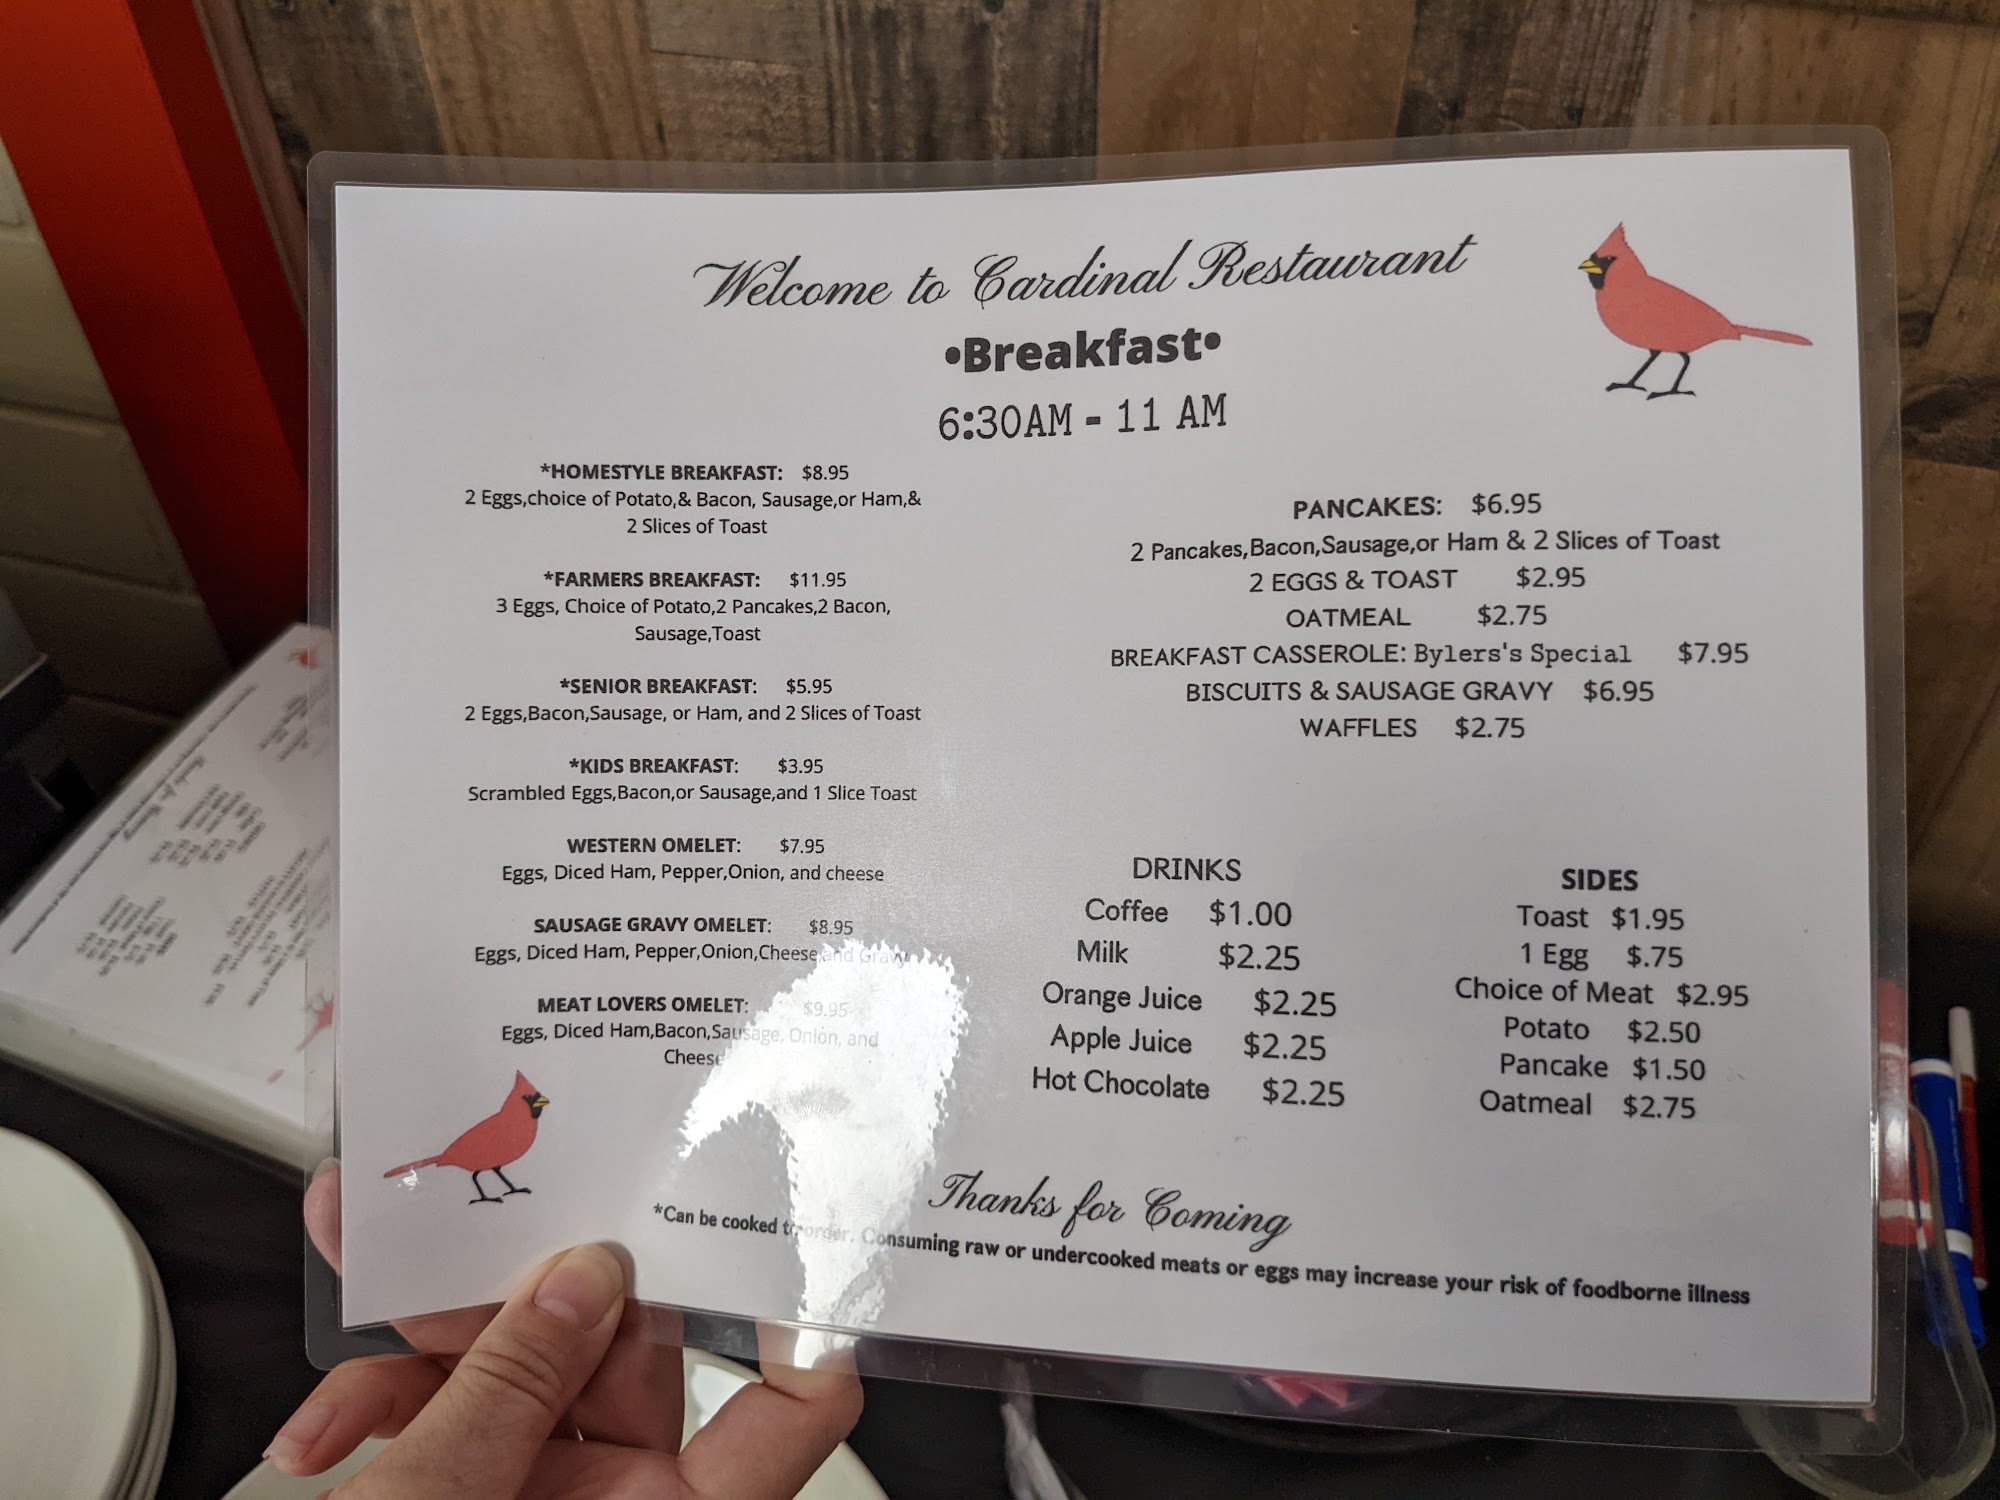 Welcome to Cardinal Restaurant
•Breakfast•
6:30AM - 11 AM
*HOMESTYLE BREAKFAST: $8.95
2 Eggs,choice of Potato,& Bacon, Sausage,or Ham,&
2 Slices of Toast
*FARMERS BREAKFAST: $11.95
3 Eggs, Choice of Potato,2 Pancakes,2 Bacon,
Sausage,Toast
*SENIOR BREAKFAST: $5.95
2 Eggs,Bacon,Sausage, or Ham, and 2 Slices of Toast
*KIDS BREAKFAST: $3.95
Scrambled Eggs,Bacon,or Sausage,and 1 Slice Toast
WESTERN OMELET: $7.95
Eggs, Diced Ham, Pepper,Onion, and cheese
SAUSAGE GRAVY OMELET: $8.95
Eggs, Diced Ham, Pepper,Onion,Cheese,and Gravy
MEAT LOVERS OMELET: $9.95
Eggs, Diced Ham,Bacon,Sausage, Onion, and
Cheese
PANCAKES: $6.95
2 Pancakes,Bacon,Sausage,or Ham & 2 Slices of Toast
2 EGGS & TOAST $2.95
OATMEAL $2.75
BREAKFAST CASSEROLE: Bylers's Special $7.95
BISCUITS & SAUSAGE GRAVY $6.95
WAFFLES $2.75
DRINKS
Coffee $1.00
Milk $2.25
Orange Juice $2.25
Apple Juice $2.25
Hot Chocolate $2.25
SIDES
Toast $1.95
1 Egg $.75
Choice of Meat $2.95
Potato $2.50
Pancake $1.50
Oatmeal $2.75
Thanks for Coming
*Can be cooked to order. Consuming raw or undercooked meats or eggs may increase your risk of foodborne illness